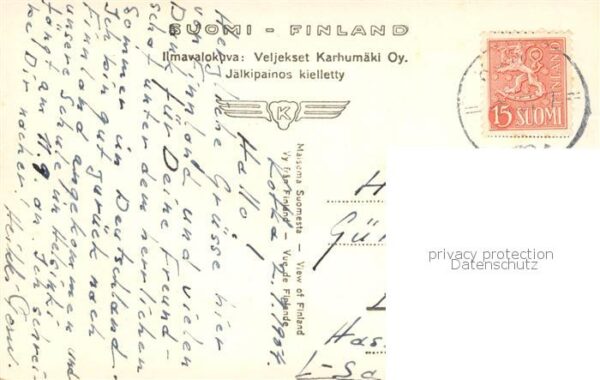 SUOMI - FINLAND
Ilmavalokuva: Veljekset Karhumäki Oy.
Jälkipainos kielletty
K
15 SUOMI
FINLAND
Maisema Suomesta — View of Finland
Vy från Finland — Vue de Finlande
Kotka 2.9.1957.
Hallo!
Herzliche Grüsse hier
von Finnland und vielen
Dank für Deine Freund-
schaft unter dem herrlichen
Sommer in Deutschland.
Ich bin gut zurück nach
Finnland angekommen und
unsere Schule in Helsinki
fängt am 11.9 an. Ich schrei-
be Dir nachher!
Heikki
H
Gün
Has
privacy protection
Datenschutz